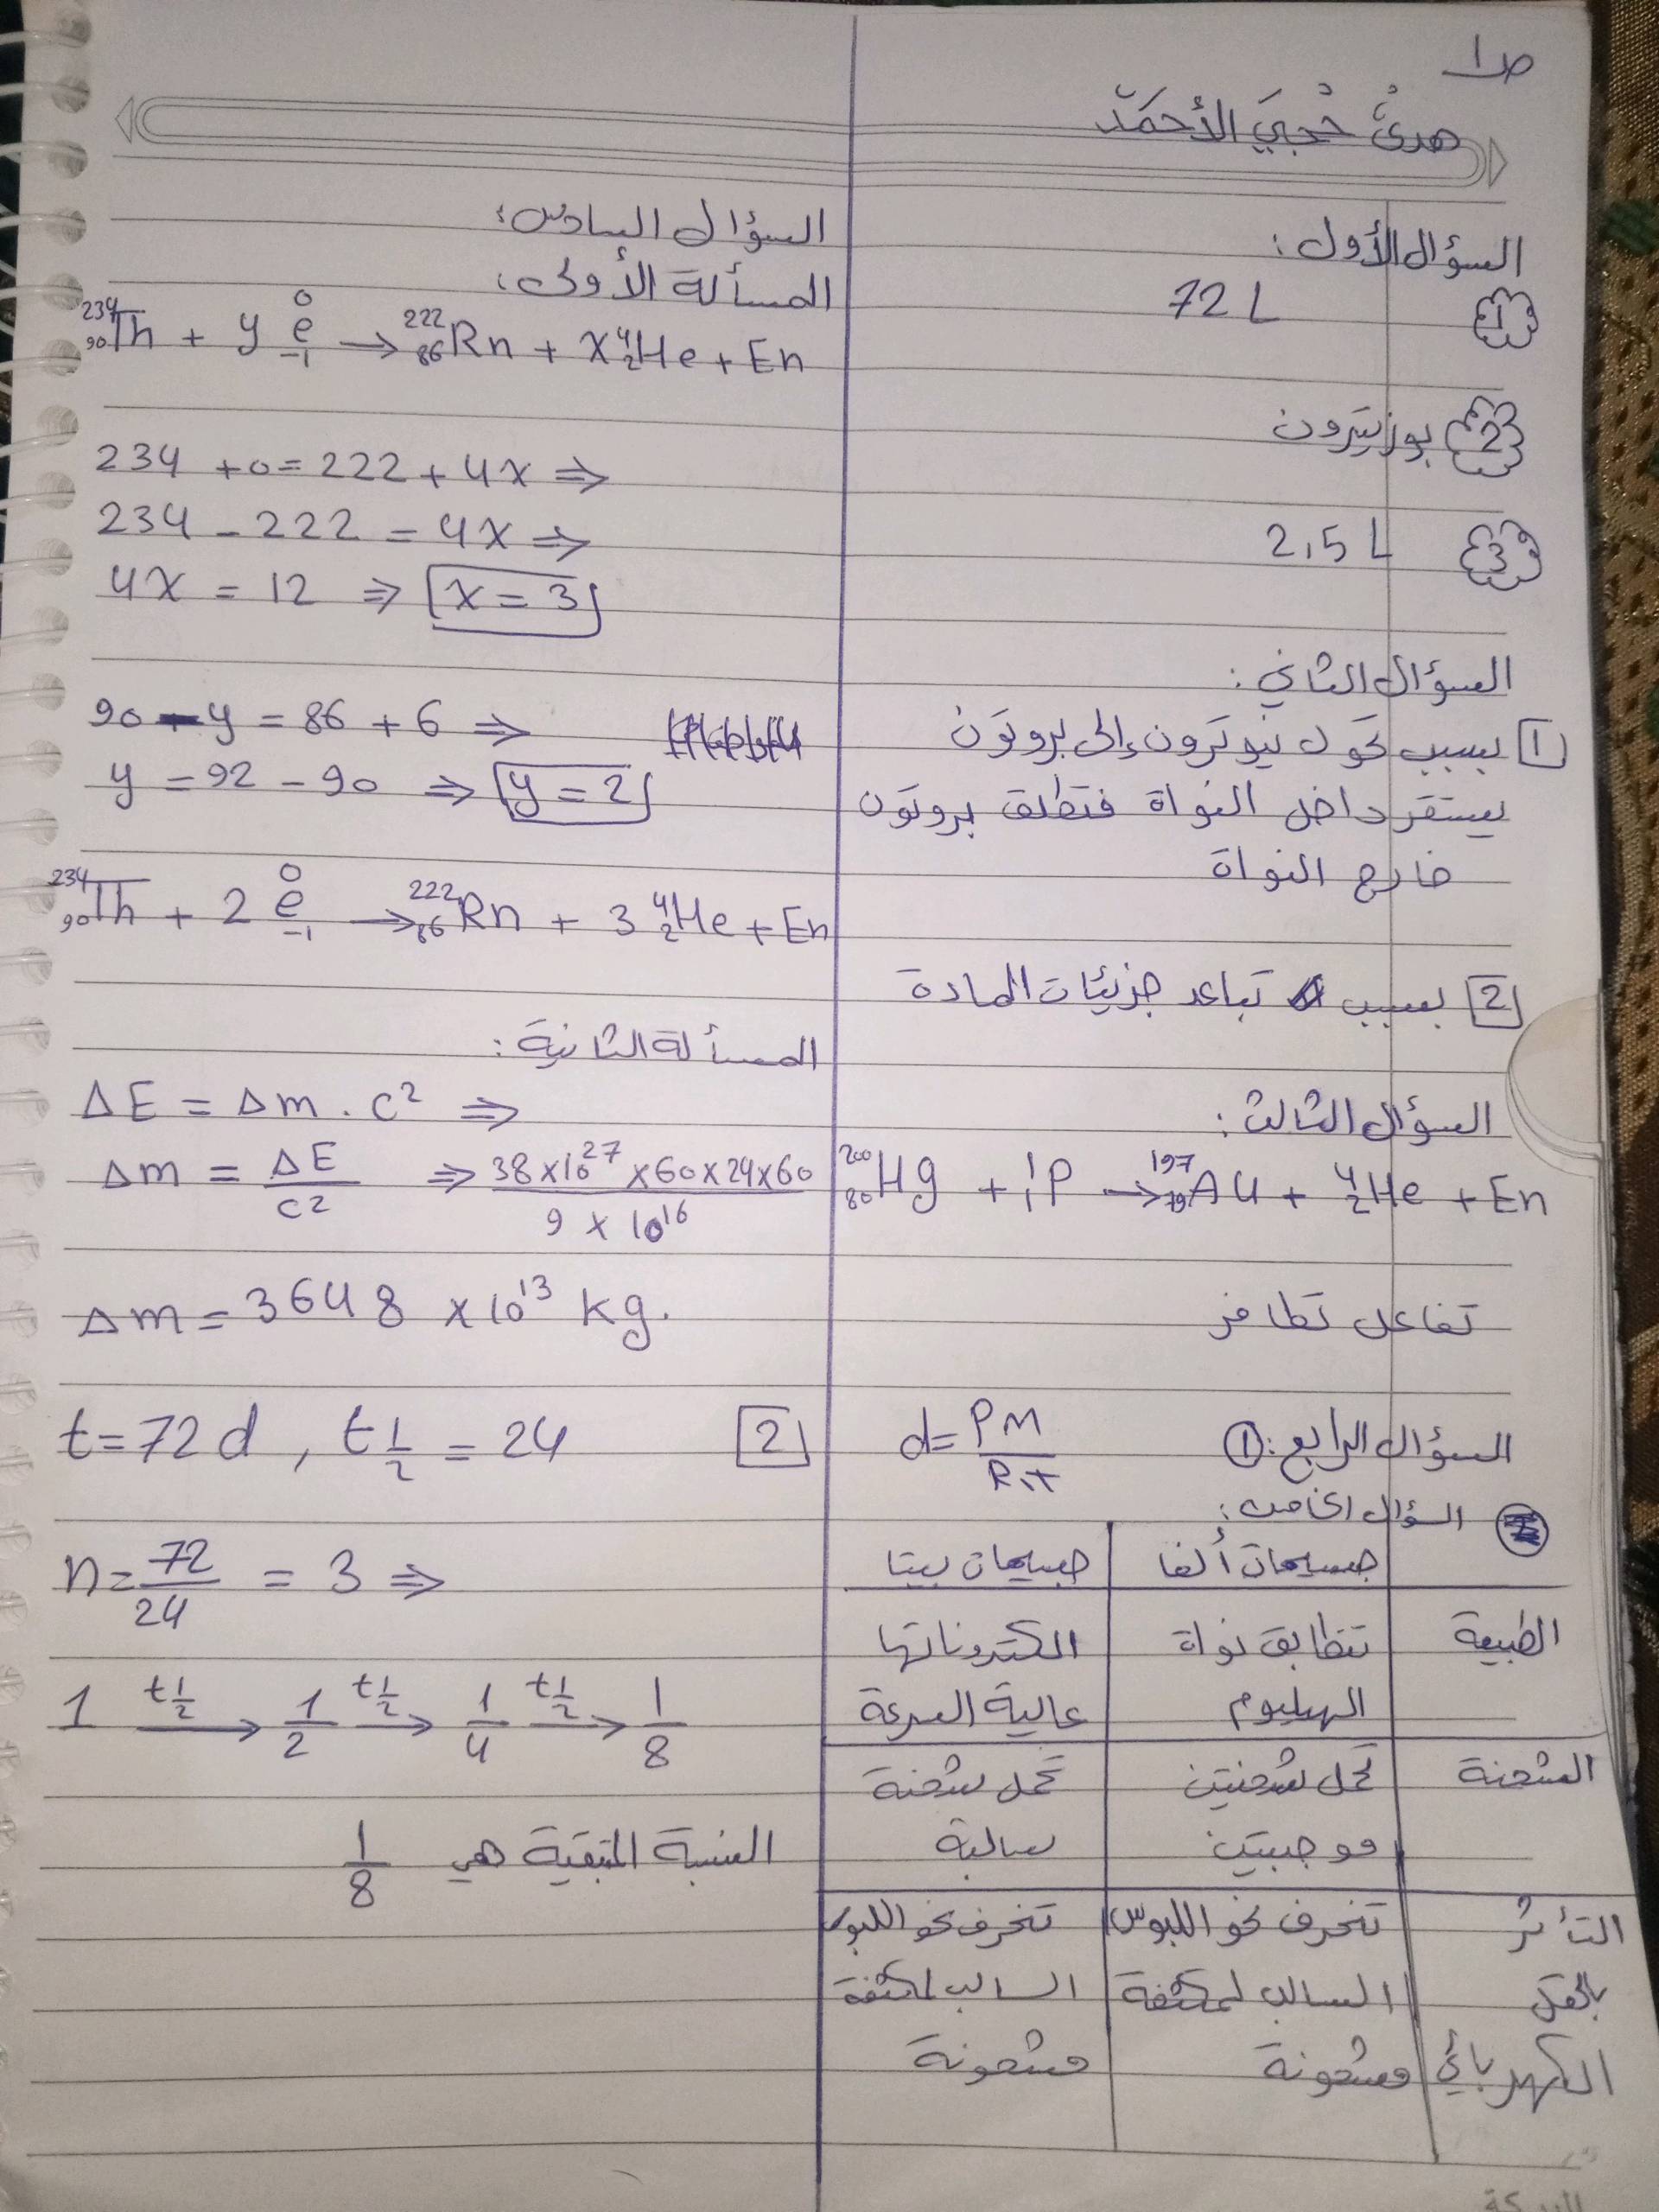 ص١
هدى حجي الأحمد
السؤال الأول:
1 72 L
2 بوزيترون
3 2,5 L
السؤال الثاني:
1 بسبب تحول نيوترون إلى بروتون
يستقر داخل النواة فتطلق بروتون
خارج النواة
2 بسبب تباعد جزيئات المادة
السؤال الثالث:
²⁰⁰₈₀Hg + ¹₁P → ¹⁹⁷₇₉Au + ⁴₂He + En
تفاعل تطافر
السؤال الرابع: ① d = PM / R.T
السؤال الخامس:
جسيمات ألفا جسيمات بيتا
الطبيعة تتطابق نواة الكتروناتها
الهيليوم عالية السرعة
الشحنة تحمل شحنتين تحمل شحنة
موجبتين سالبة
التأثر تنحرف نحو اللبوس تنحرف نحو اللبوس
بالحقل السالب لمكثفة السالب لمكثفة
الكهربائي مشحونة مشحونة
السؤال السادس:
المسألة الأولى:
²³⁴₉₀Th + y ⁰₋₁e → ²²²₈₆Rn + x ⁴₂He + En
234 + 0 = 222 + 4x ⇒
234 - 222 = 4x ⇒
4x = 12 ⇒ x = 3
90 - y = 86 + 6 ⇒
y = 92 - 90 ⇒ y = 2
²³⁴₉₀Th + 2 ⁰₋₁e → ²²²₈₆Rn + 3 ⁴₂He + En
المسألة الثانية:
ΔE = Δm . c² ⇒
Δm = ΔE / c² ⇒ 38 × 10²⁷ × 60 × 24 × 60 / 9 × 10¹⁶
Δm = 3648 × 10¹³ kg.
2 t = 72 d , t½ = 24
n = 72/24 = 3 ⇒
1 →(t½) 1/2 →(t½) 1/4 →(t½) 1/8
النسبة المتبقية هي 1/8